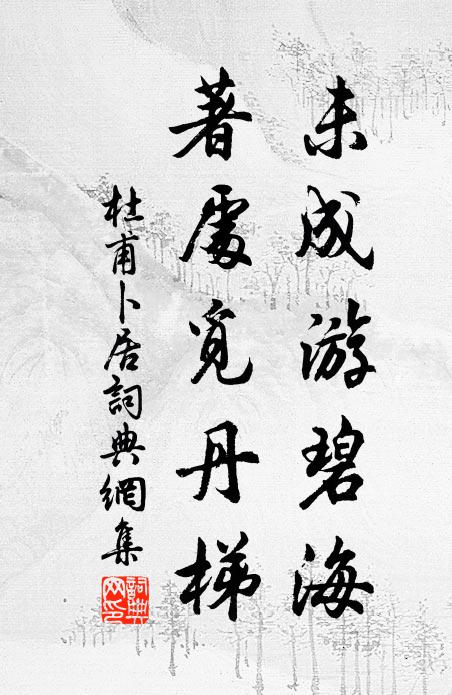 未成游碧海
著處覓丹梯
杜甫卜居詞典網集
詞典网印